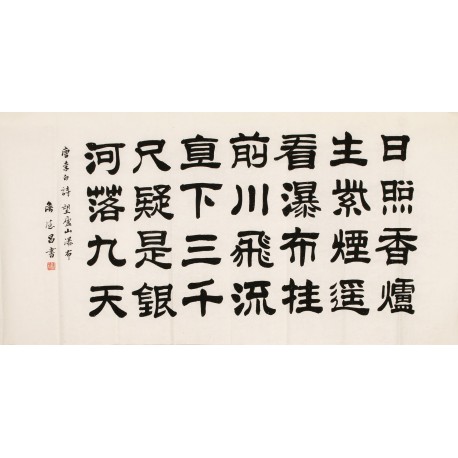 日照香爐
生紫煙遥
看瀑布挂
前川飛流
直下三千
尺疑是銀
河落九天
唐李白詩望廬山瀑布
德昌書